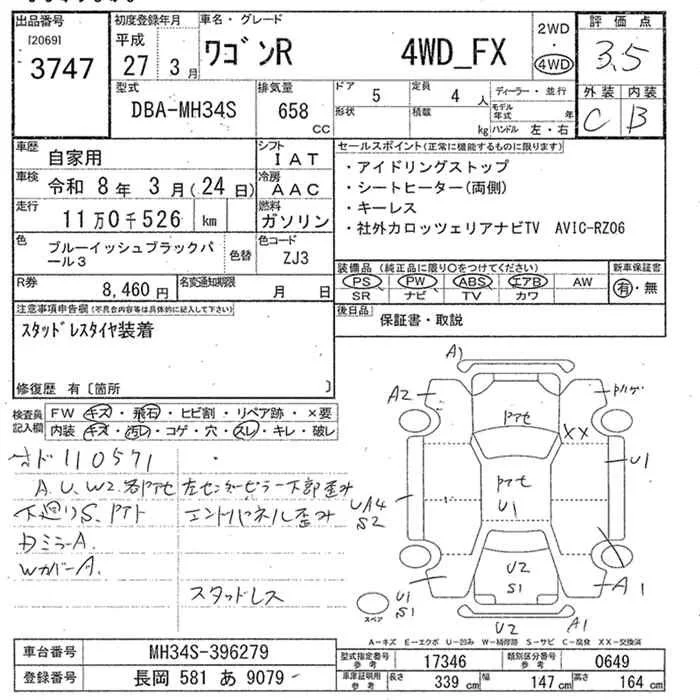 出品番号
[2069]
3747
初度登録年月
平成
27 3 月
車名・グレード
ワゴンR 4WD_FX
2WD
・
4WD
評価点
3.5
外装 内装
C B
型式
DBA-MH34S
排気量
658
CC
ドア 5
定員 4 人
形状
積載 kg
ディーラー・並行
モデル年式 年
ハンドル 左・右
車歴
自家用
シフト
IAT
車検
令和 8 年 3 月 ( 24 日)
冷房
AAC
走行
11 万 0 千 526 km
燃料
ガソリン
色
ブルーイッシュブラックパール3
色替
色コード
ZJ3
セールスポイント(正常に機能するものに限ります)
・アイドリングストップ
・シートヒーター(両側)
・キーレス
・社外カロッツェリアナビTV AVIC-RZ06
R券
8,460 円
名変通知期限
月 日
装備品 (純正品に限り○をつけてください)
PS PW ABS エアB AW
SR ナビ TV カワ
新車保証書
有・無
後日品
保証書・取説
注意事項申告欄(不具合内容等は具体的に記入して下さい)
スタッドレスタイヤ装着
修復歴 有〔箇所 〕
検査員記入欄
FW キズ・飛石・ヒビ割・リペア跡・×要
内装 キズ・汚レ・コゲ・穴・スレ・キレ・破レ
110571
A.U.W2.各Pアセ 左センターピラー下部歪み
下廻りS.Pアト エンドパネル歪み
ミラーA.
WカバーA.
スタッドレス
A1
A2
Pアセ
Pハゲ
XX
U1
UA4
S2
Pアセ
U1
U2
S1
U1
S1
A1
U2
A1
スペア
A-キズ E-エクボ U-凹み W-補修跡 S-サビ C-腐食 XX-交換済
車台番号
MH34S-396279
登録番号
長岡 581 あ 9079
型式指定番号
参考
17346
類別区分番号
参考
0649
車庫証明用
参考
長さ 339 cm
幅 147 cm
高さ 164 cm